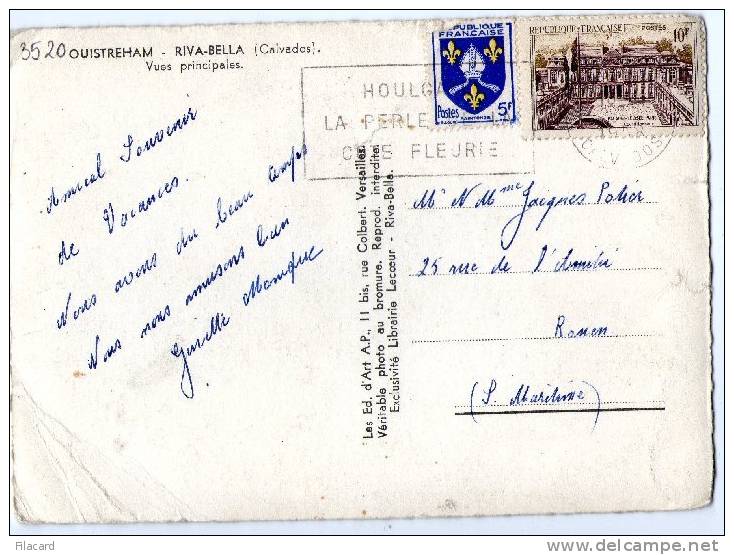 3520
OUISTREHAM - RIVA-BELLA (Calvados).
Vues principales.
Amical Souvenir
de Vacances.
Nous avons du beau temps
Nous nous amusons bien
Monique
REPUBLIQUE
FRANÇAISE
Postes 5F
SAINTONGE
REPUBLIQUE FRANÇAISE POSTES
10F
HOULGA
LA PERLE
CÔTE FLEURIE
CALVADOS
Les Ed. d'Art A.P., 11 bis, rue Colbert, Versailles.
Véritable photo au bromure. Reprod. interdite.
Exclusivité Librairie Lecœur - Riva-Bella.
Mr Mme Jacques
25 rue de l'Amitié
Rouen
(S. Maritime)
Filacard
www.delcampe.net